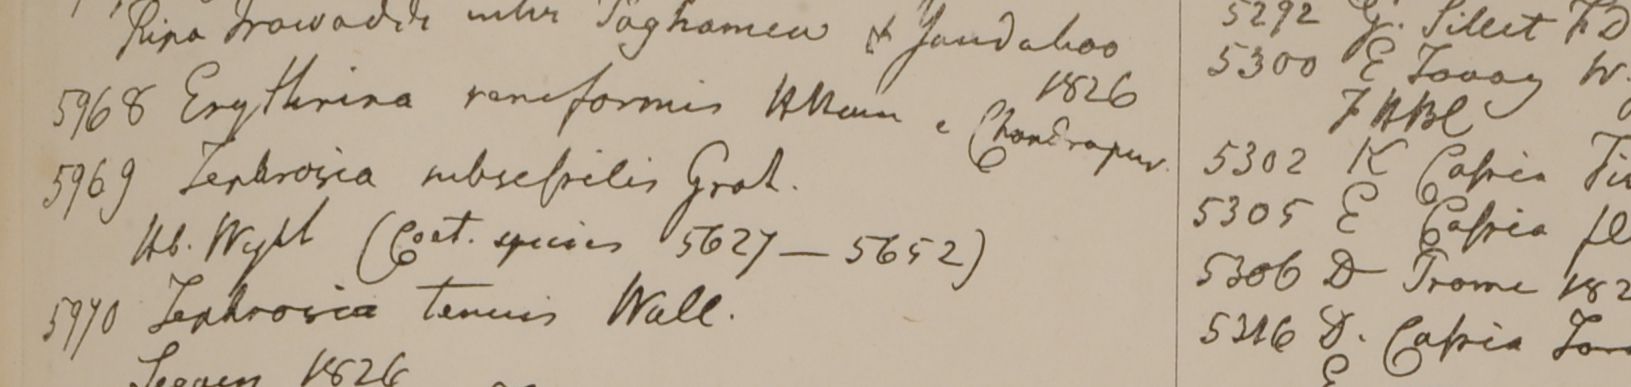 Ripa Irawaddi inter Paghamew & Yandaboo
1826
5968 Erythrina reniformis HHam e Chandrapur.
5969 Tephrosia subsessilis Grah.
Hb. Wight (Coet. species 5627 — 5652)
5970 Tephrosia tenuis Wall.
Segaen 1826
5292 G. Sillet FD
5300 E Tavoy W.
F HBC
5302 K Cassia
5305 E Cassia fl
5306 D Prome 182
5316 D. Cassia
E